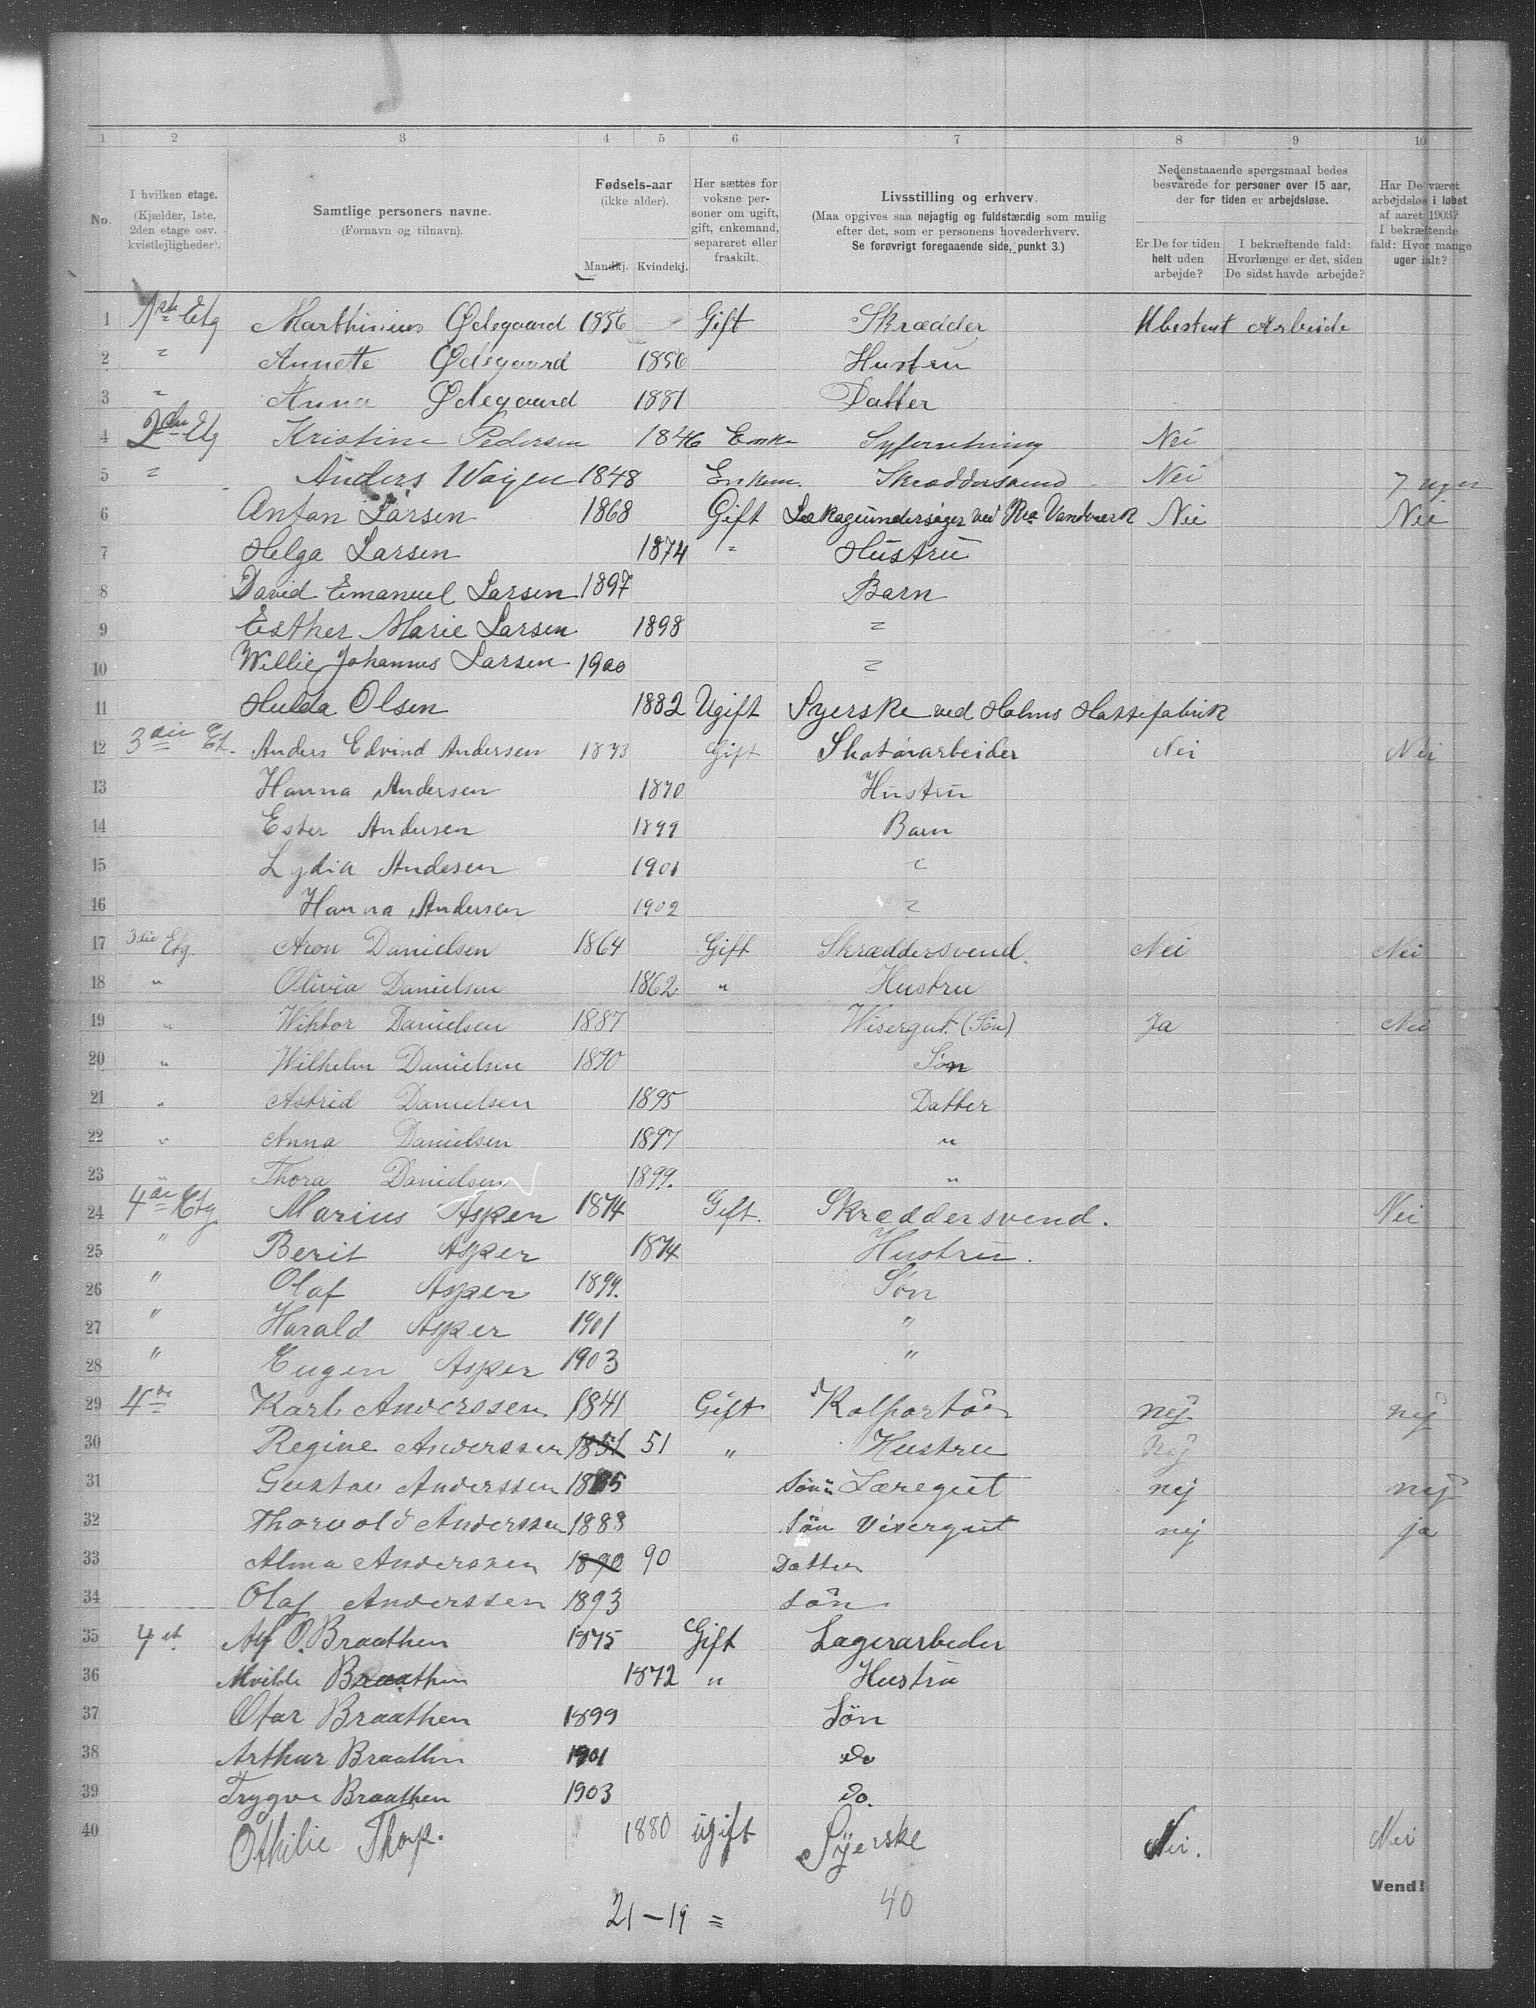 1 2 3 4 5 6 7 8 9 10
No.
I hvilken etage.
(Kjælder, 1ste,
2den etage osv.
kvistleiligheder).
Samtlige personers navne.
(Fornavn og tilnavn).
Fødsels-aar
(ikke alder).
Mandkj. Kvindekj.
Her sættes for
voksne per-
soner om ugift,
gift, enkemand,
separeret eller
fraskilt.
Livsstilling og erhverv.
(Maa opgives saa nøjagtig og fuldstændig som mulig
efter det, som er personens hovederhverv.
Se forøvrigt foregaaende side, punkt 3.)
Nedenstaaende spørgsmaal bedes
besvarede for personer over 15 aar,
der for tiden er arbejdsløse.
Er De for tiden
helt uden
arbejde?
I bekræftende fald:
Hvorlænge er det, siden
De sidst havde arbejde?
Har De været
arbejdsløs i løbet
af aaret 1903?
I bekræftende
fald: Hvor mange
uger ialt?
1 1ste Etg Marthinius Ødegaard 1856 Gift Skrædder Ubestent Arbeide
2 " Annette Ødegaard 1856 Hustru
3 " Anna Ødegaard 1881 Datter
4 2den Etg Kristine Pedersen 1846 Enke Syforretning Nei
5 " Anders Wagen 1848 Enkem. Skræddersvend Nei 7 uger
6 Anton Larsen 1868 Gift Lækageundersøger ved Kra Vandværk Nei Nei
7 Helga Larsen 1874 " Hustru
8 David Emanuel Larsen 1897 Barn
9 Esther Marie Larsen 1898 "
10 Willie Johannes Larsen 1900 "
11 Hulda Olsen 1882 Ugift Syerske ved Holms Hattefabrik
12 3die Et. Anders Edvind Andersen 1873 Gift Skotøiarbeider Nei Nei
13 Hanna Andersen 1870 Hustru
14 Ester Andersen 1899 Barn
15 Lydia Andesen 1901 "
16 Hanna Andersen 1902 "
17 3die Etg. Aron Danielsen 1864 Gift Skræddersvend. Nei Nei
18 " Olivia Danielsen 1862 " Hustru
19 " Wiktor Danielsen 1887 Wisergut (Søn) Ja Nei
20 " Wilhelm Danielsen 1890 Søn
21 " Astrid Danielsen 1895 Datter
22 " Anna Danielsen 1897 "
23 " Thora Danielsen 1899. "
24 4de Etg. Marius Asper 1874 Gift. Skræddersvend. Nei
25 " Berit Asper 1874 Hustru.
26 " Olaf Asper 1899. Søn
27 " Harald Asper 1901 "
28 " Eugen Asper 1903 "
29 4de Karl Anderssen 1841 Gift Kolportör nej nej
30 Regine Anderssen 1851 51 " Hustru nej
31 Gustav Anderssen 1885 Sön Læregut nej nej
32 Thorvold Anderssen 1888 Sön Visergut nej ja
33 Alma Anderssen 1890 90 Datter
34 Olaf Anderssen 1893 Sön
35 4 et. Alf O. Braathen 1875 Gift Lagerarbeder
36 Braathen 1872 " Hustru
37 Otar Braathen 1899 Sön
38 Arthur Braathen 1901 do
39 Trygve Braathen 1903 do.
40 Othilie Thorp. 1880 ugift Syerske Nei. Nei
Vend!
21 – 19 = 40